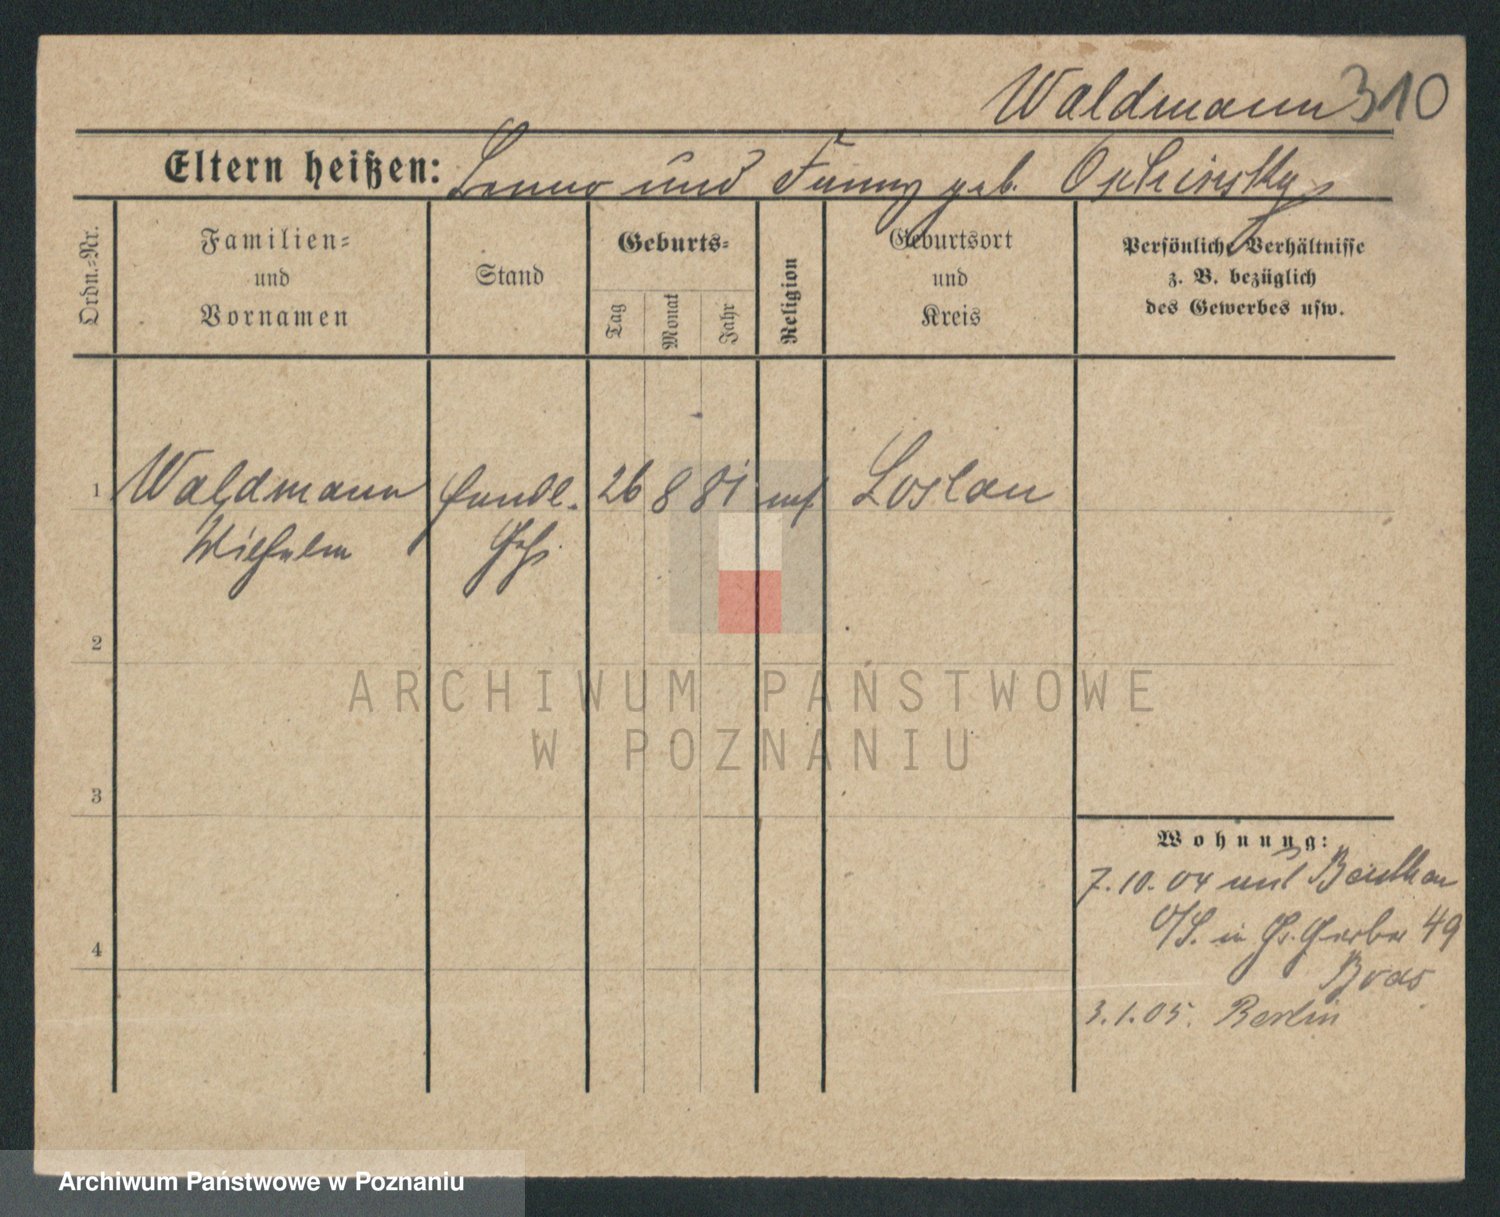 Waldmann 310
Eltern heißen: Benno und Fanny geb. Oschinsky
Ordn.-Nr.
Familien-
und
Vornamen
Stand
Geburts-
Tag
Monat
Jahr
Religion
Geburtsort
und
Kreis
Persönliche Verhältnisse
z. B. bezüglich
des Gewerbes usw.
1 Waldmann Handl. 26 8 81 mos Loslau
Wilhelm Geh.
2
ARCHIWUM PAŃSTWOWE
W POZNANIU
3
Wohnung:
7.10.04 aus Beuthen
O/S. in Gr. Gerber 49
4
3.1.05. Berlin
Archiwum Państwowe w Poznaniu